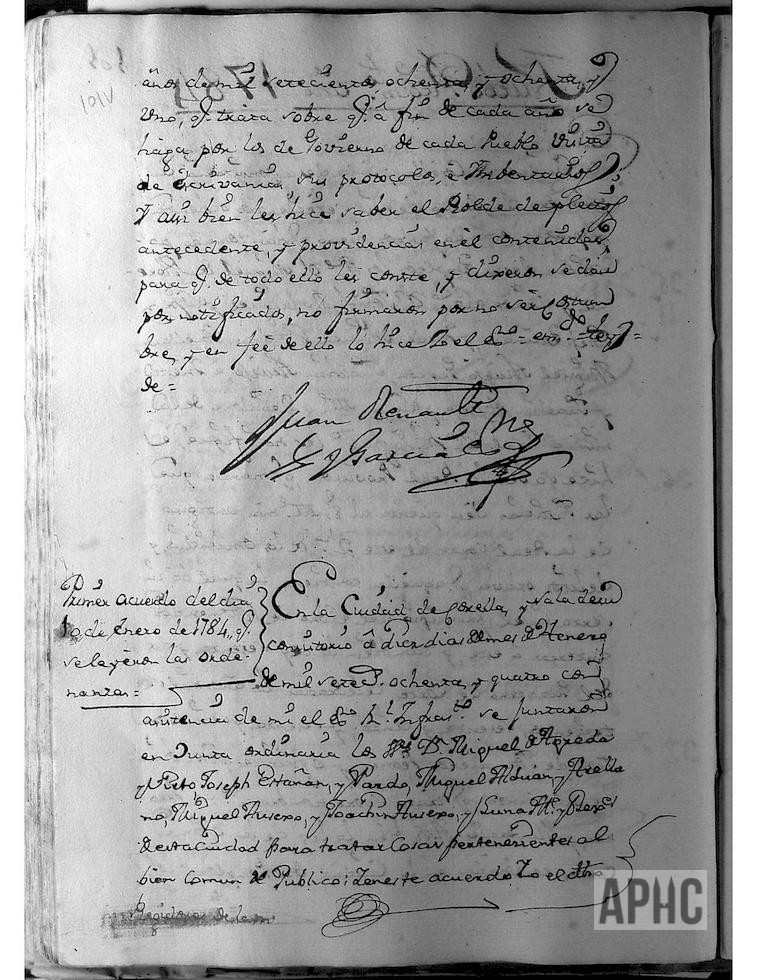 101V
años de mil setecientos ochenta, y ochenta, y
Uno, q.e trata sobre q.e â fin de cada año se
haga por los de Govierno de cada Pueblo visita
de Escrivanias sus protocolos, è Imbentarios
Y asi bien les hice saber el Rolde de pleitos
antecedente, y providencias en èl contenidas,
para q.e de todo ello les conste, y dixeron se dan
por notificados, no firmaron por no ser costum
bre, y en feè de ello lo hice Yo el Ss.no = em.do = ley =
de =
Juan Renault
y Garcia
Primer acuerdo del dia
10 de Enero de 1784, q.e
se leyeron las orde-
nanzas =
En la Ciudad de Corella, y Sala de su
consistorio â diez dias del mes de Henero
de mil setec.s ochenta, y quatro con
asistencia de mi el Ss.no R.l Infras.to se juntaron
en Junta ordinaria los SS.s D.n Miguel de Agreda
y Pinto, Joseph Estañan, y Pardo, Miguel Alduan, y Arella
no, Miguel Ausexo, y Joachin Ausexo, y Luna Al.e y Rex.s
de esta Ciudad para tratar cosas pertenecientes al
bien comun y Publico; Y en este acuerdo Yo el
Regidores de la
APHC